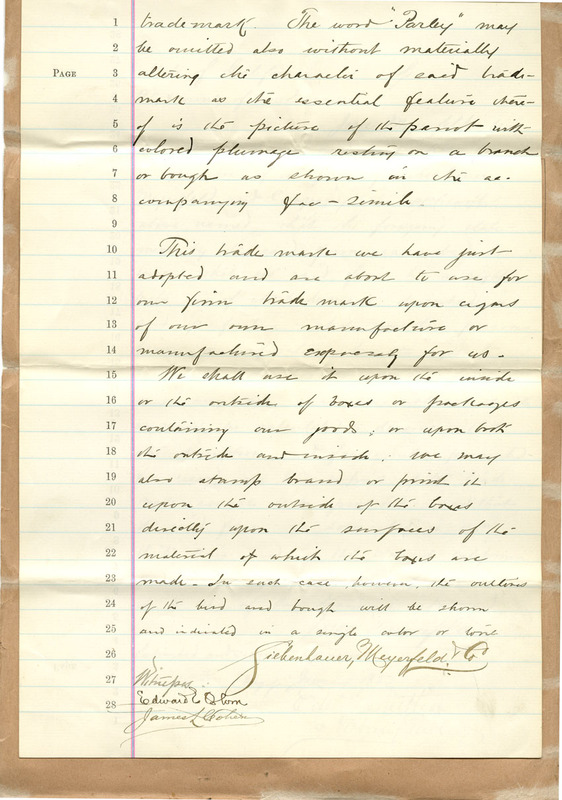 1 trademark. The word "Parley" may
2 be omitted also without materially
PAGE 3 altering the character of said trade-
4 mark as the essential feature there-
5 of is the picture of the parrot with
6 colored plumage resting on a branch
7 or bough as shown in the ac-
8 companying fac-simile.
9
10 This trade mark we have just
11 adopted and are about to use for
12 our firm trade mark upon cigars
13 of our own manufacture or
14 manufactured expressly for us.
15 We shall use it upon the inside
16 or the outside of boxes or packages
17 containing our goods; or upon both
18 the outside and inside; we may
19 also stamp brand or print it
20 upon the outside of the boxes
21 directly upon the surfaces of the
22 material of which the boxes are
23 made. In such case, however, the outlines
24 of the bird and bough will be shown
25 and indicated in a single color or tone
26 Siebenhauer, Meyerfeld & Co
27 Witnesses
28 Edward E Osborn
James L Cohen